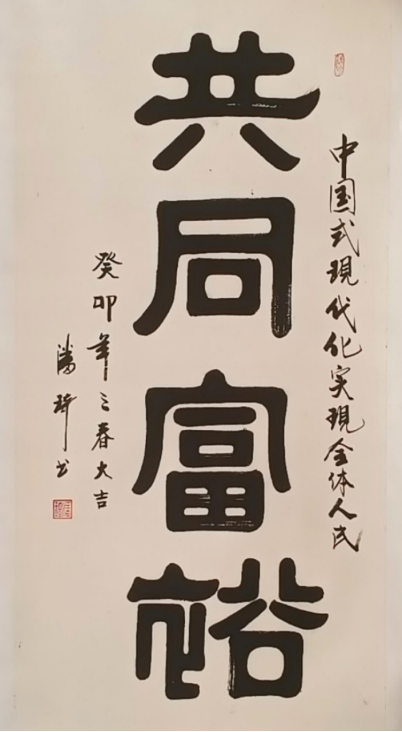 中国式現代化实現全体人民
共同富裕
癸卯年之春大吉
潘琦书